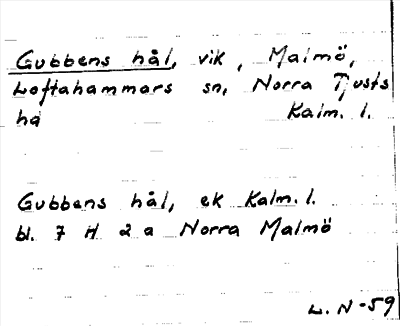 Gubbens hål, vik, Malmö,
Loftahammars sn, Norra Tjusts
hd Kalm. l.
Gubbens hål, ek Kalm. l.
bl. 7 H 2 a Norra Malmö
L. N-59